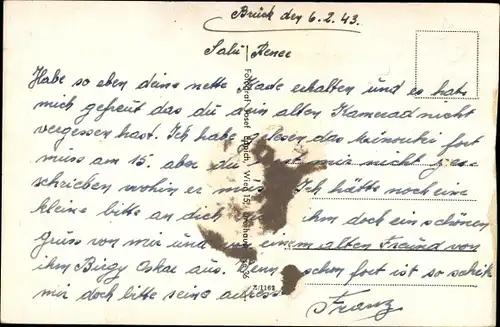 Bruck den 6.2.43.
Salü Renee
Habe so eben deine nette Karte erhalten und es hats
mich gefreut das du dein alten Kamerad nicht
vergessen hast. Ich habe gelesen das fort
muss am 15. aber du mir nicht
schrieben wohin er muss. Ich hätte noch eine
kleine bitte an dich ihm doch ein schönen
Gruss von mir und einem alten Freund von
ihm Oskar aus. schon fort ist so schik
mir doch bitte seine adress
Franz
Fotograf Josef Wien 15.
Z/1162